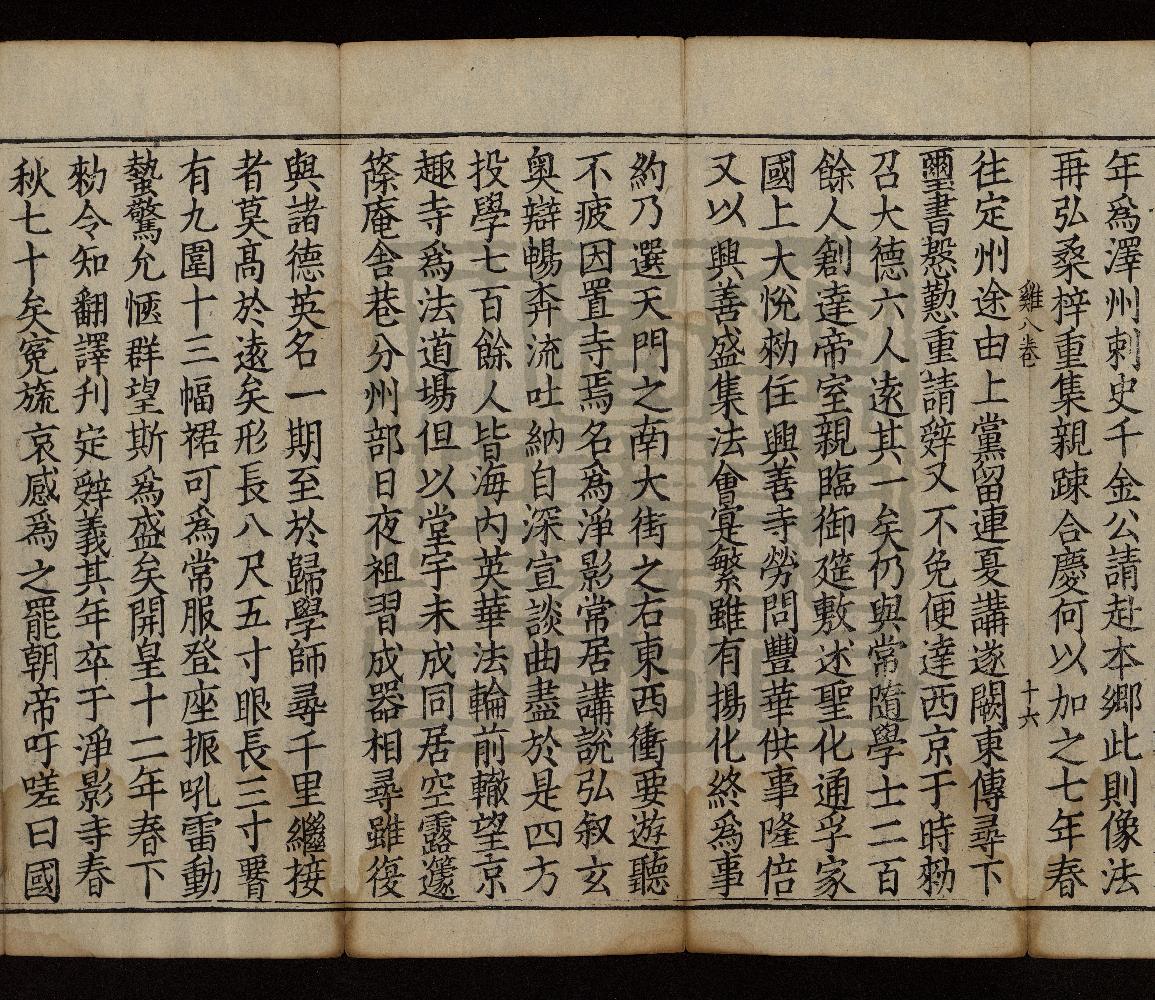 年爲澤州刺史千金公請赴本鄉此則像法
再弘桑梓重集親踈合慶何以加之七年春
雞八卷 十六
往定州途由上黨留連夏講遂闕東傳尋下
璽書慇懃重請辤又不免便達西京于時勑
召大德六人遠其一矣仍與常隨學士二百
餘人創達帝室親臨御筵敷述聖化通孚家
國上大悅勑住興善寺勞問豐華供事隆倍
又以興善盛集法會寔繁雖有揚化終爲事
約乃選天門之南大街之右東西衝要遊聽
不疲因置寺焉名爲淨影常居講說弘叙玄
奧辯暢奔流吐納自深宣談曲盡於是四方
投學七百餘人皆海內英華法輪前轍望京
趣寺爲法道場但以堂宇未成同居空露蘧
篨庵舍巷分州部日夜祖習成器相尋雖復
與諸德英名一期至於歸學師尋千里繼接
者莫高於遠矣形長八尺五寸眼長三寸署
有九圍十三幅裙可爲常服登座振吼雷動
蟄驚允愜群望斯爲盛矣開皇十二年春下
勑令知翻譯刋定辤義其年卒于淨影寺春
秋七十矣寃旒哀感爲之罷朝帝吁嗟曰國